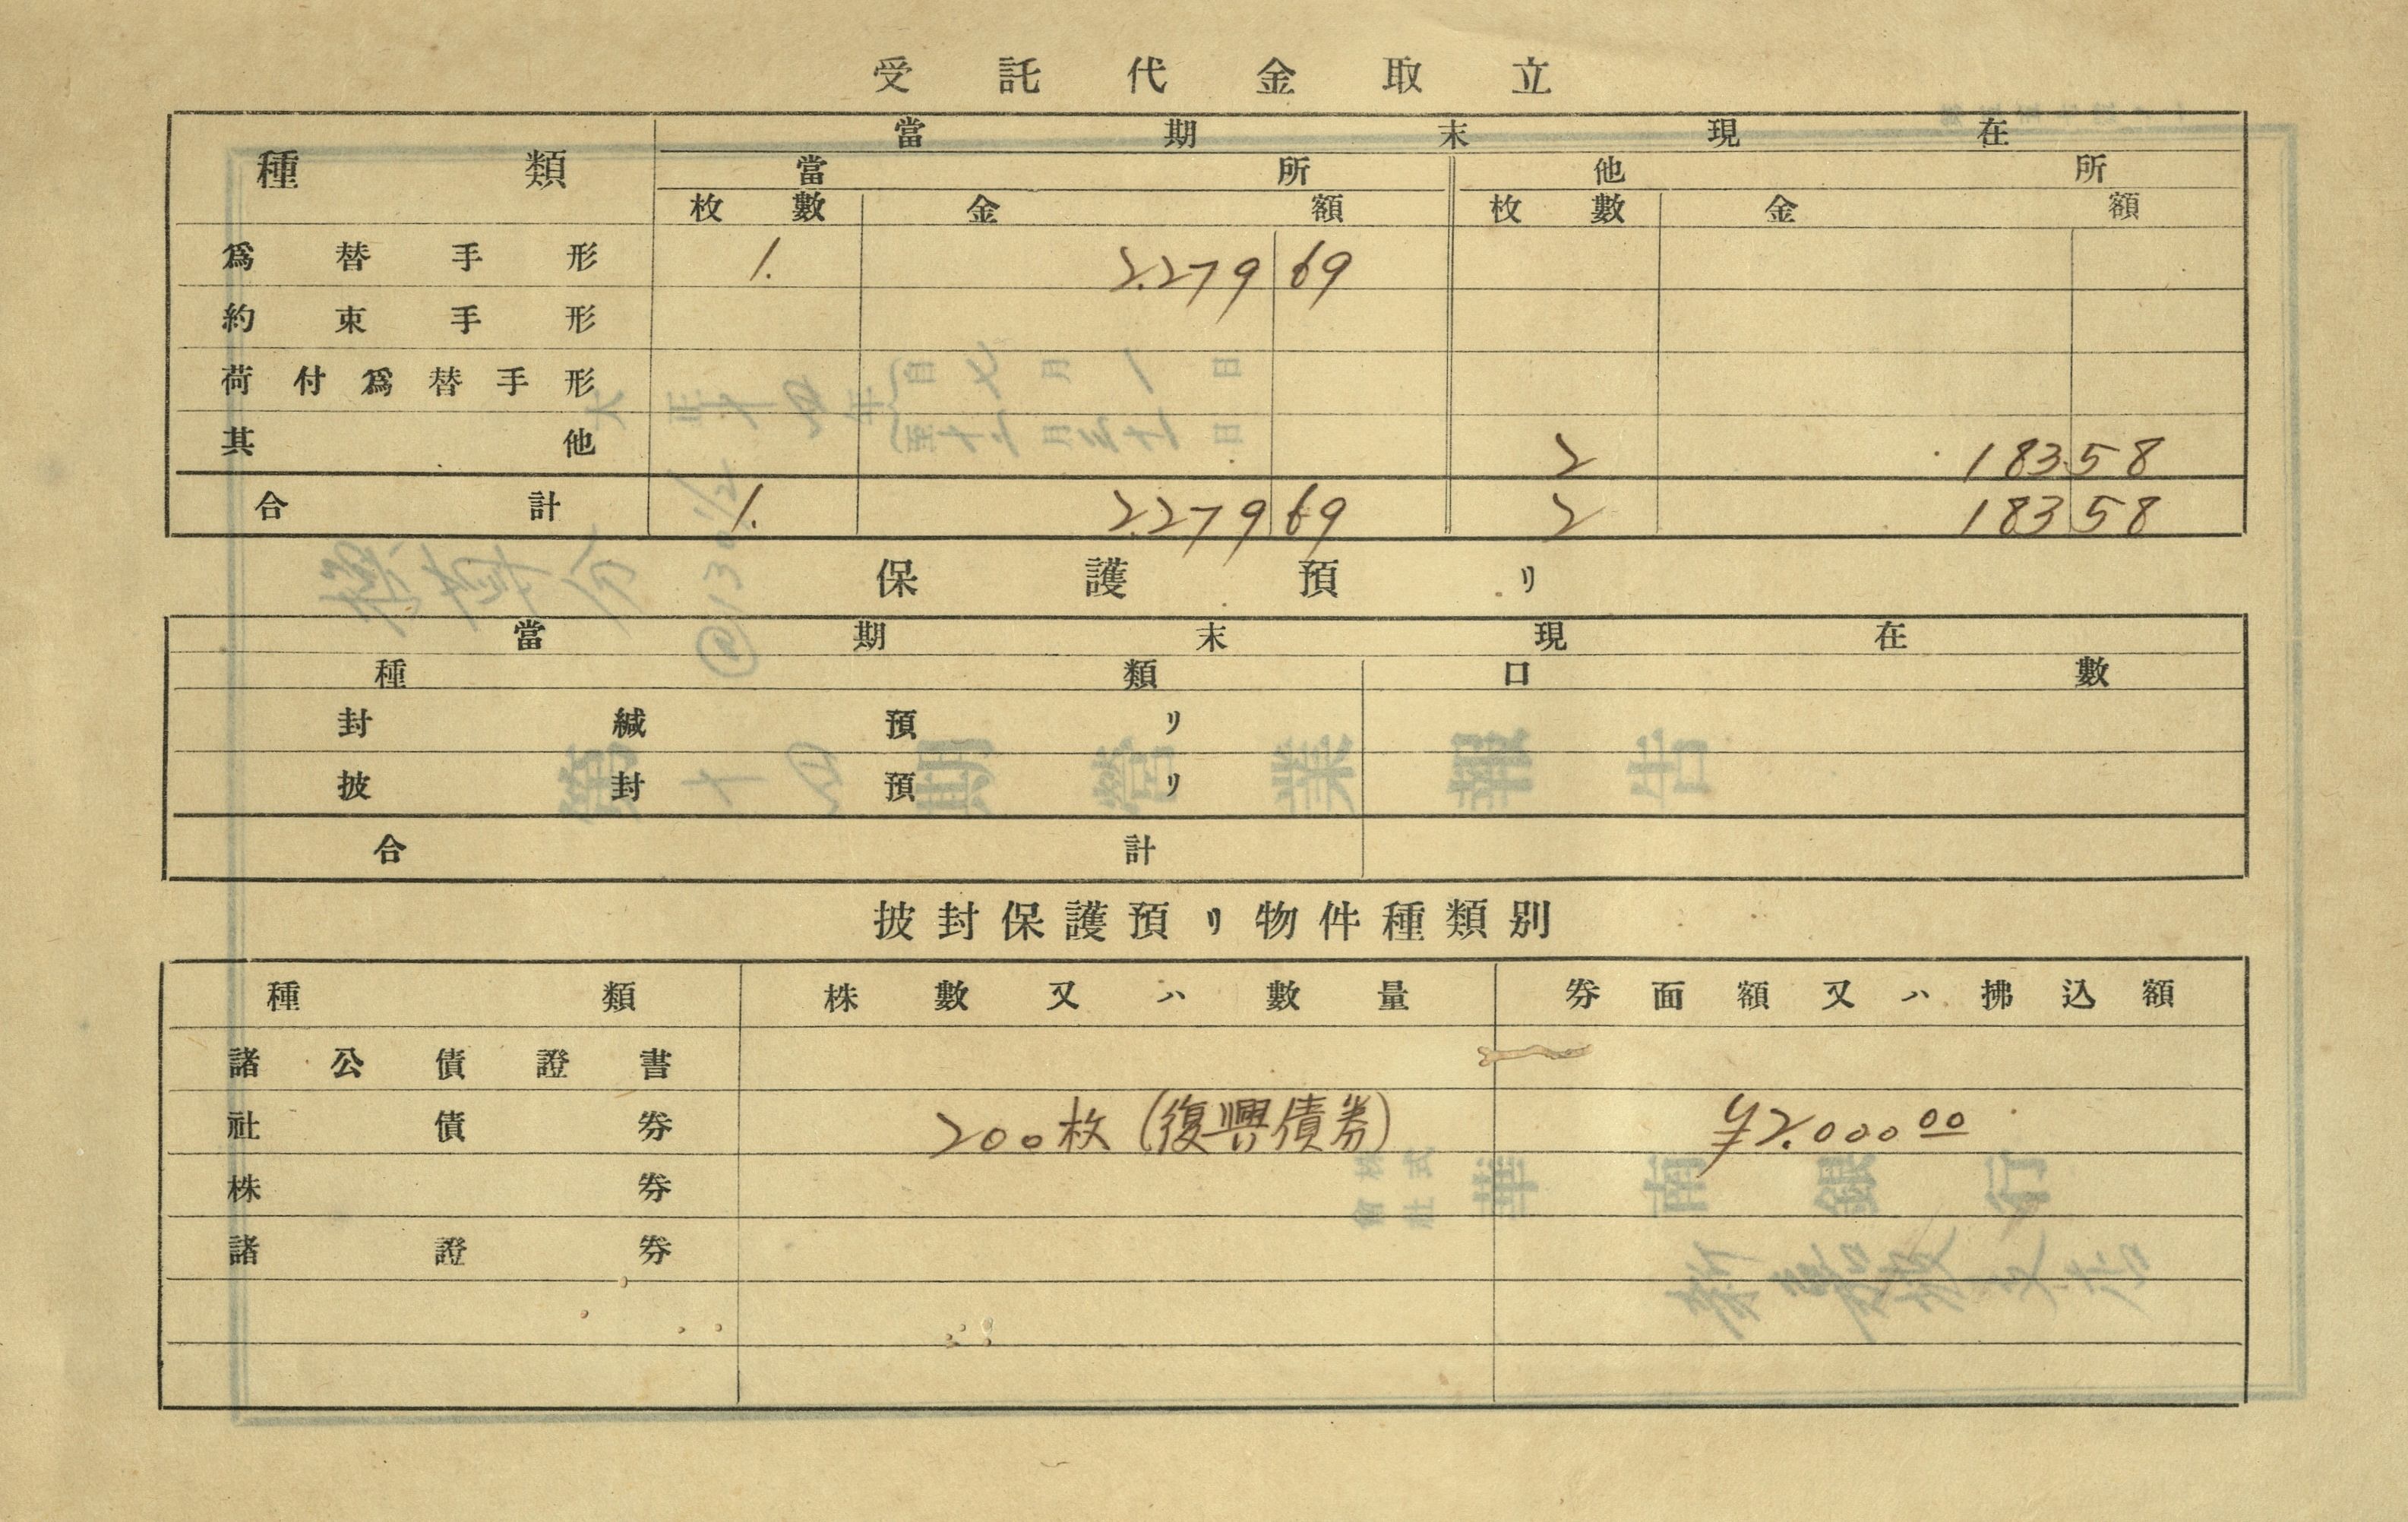 受託代金取立
種類 當期末現在
當所 他所
枚數 金額 枚數 金額
爲替手形 1. 2.279 69
約束手形
荷付爲替手形
其他 2 183.58
合計 1. 2.279 69 2 183 58
保護預リ
當期末現在
種類 口數
封緘預リ
披封預リ
合計
披封保護預リ物件種類別
種類 株數又ハ數量 券面額又ハ拂込額
諸公債證書
社債券 200枚(復興債券) ¥2.000 00
株券
諸證券
大正十四年 自七月一日 至十二月三十一日
第十四期營業報告
株式會社 華南銀行